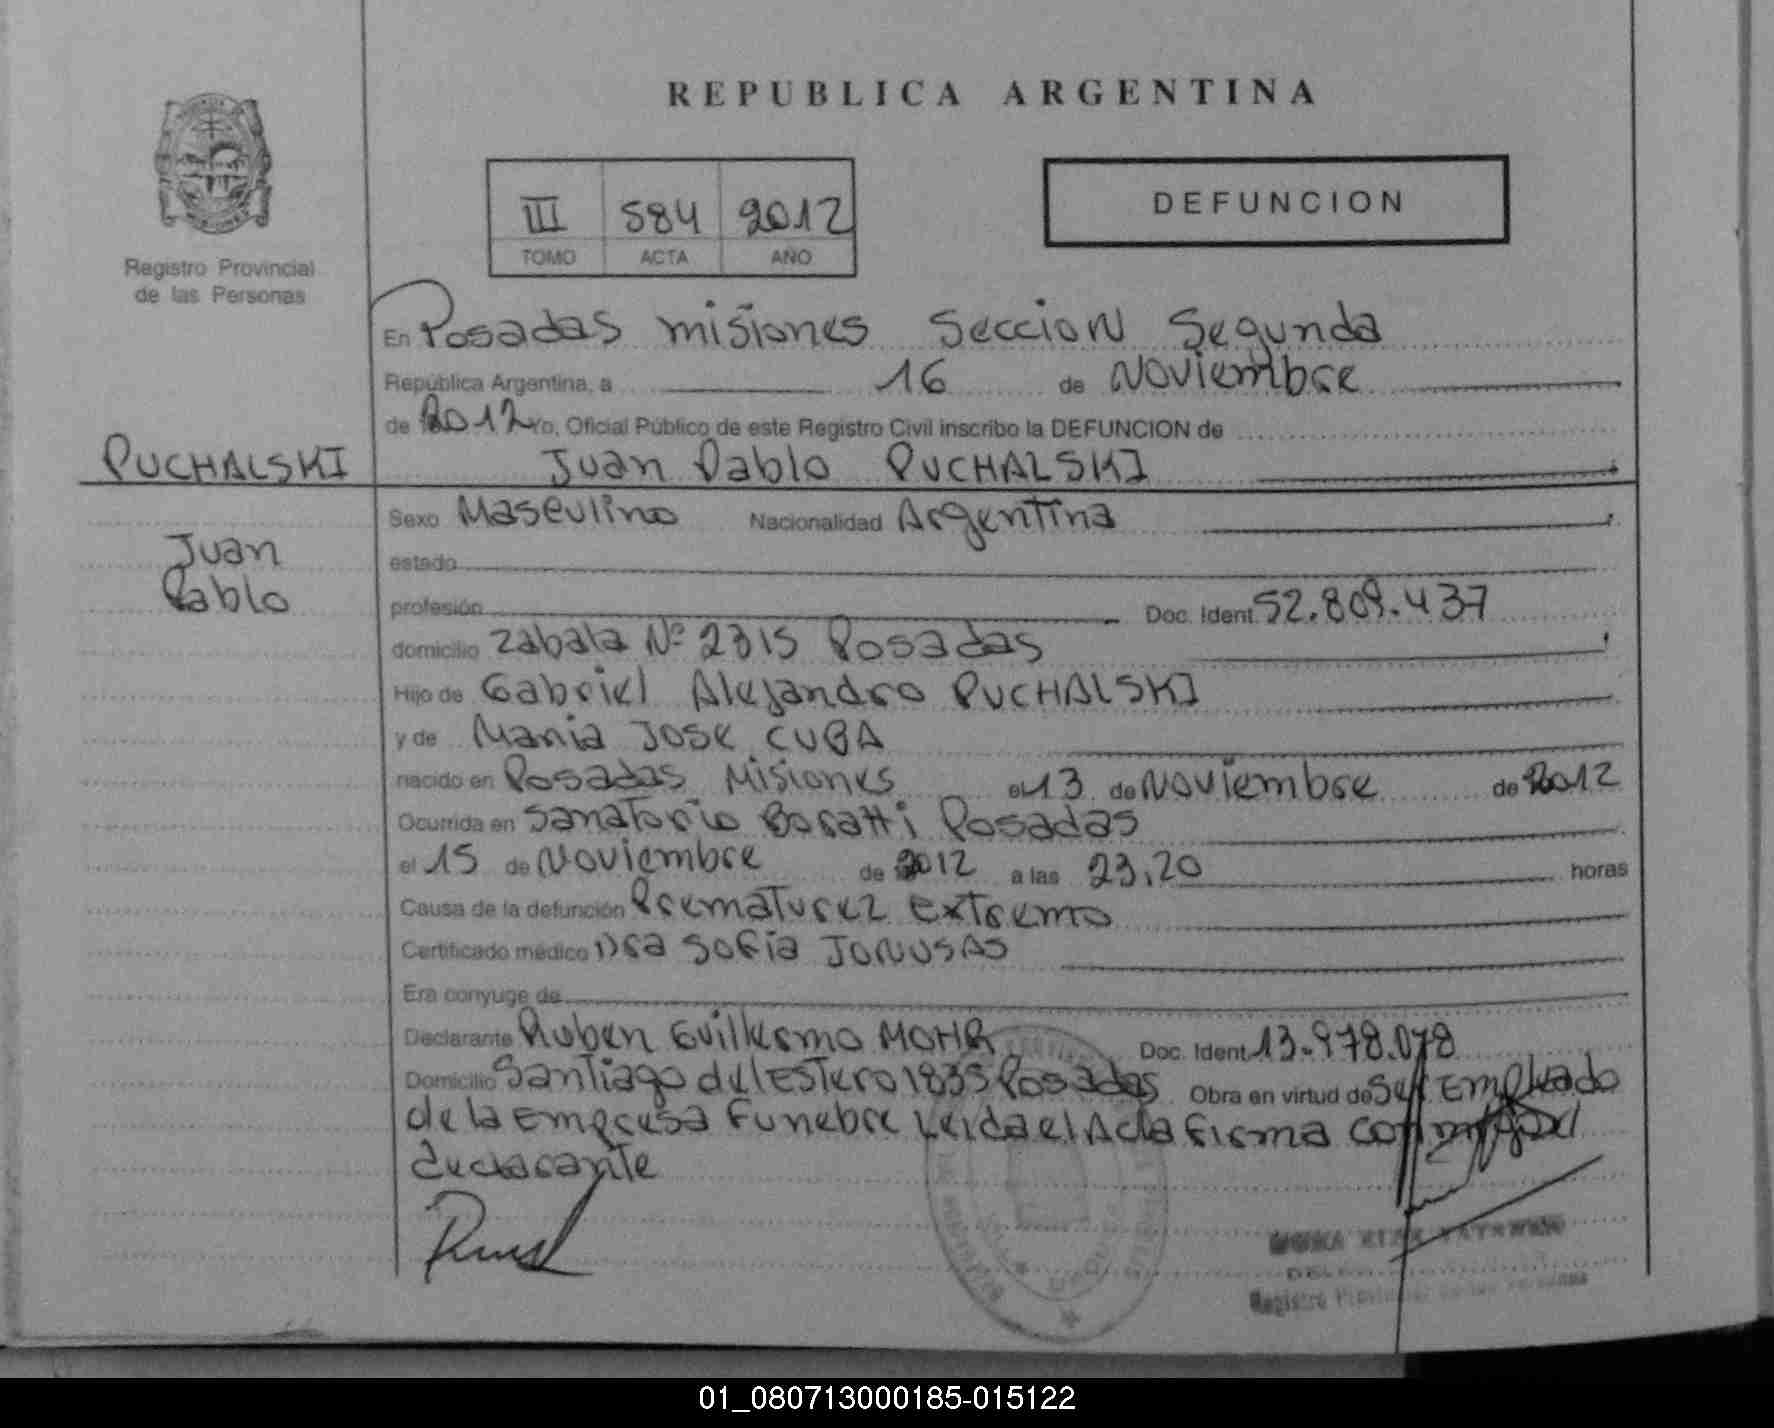 REPUBLICA ARGENTINA
Registro Provincial
de las Personas
III 584 2012
TOMO ACTA AÑO
DEFUNCION
En Posadas misiones Seccion Segunda
República Argentina, a 16 de Noviembre
de 2012 Yo, Oficial Público de este Registro Civil inscribo la DEFUNCION de
PUCHALSKI Juan Pablo PUCHALSKI
Juan
Pablo
Sexo Masculino Nacionalidad Argentina
estado
profesión Doc. Ident. 52.809.437
domicilio Zabala Nº 2315 Posadas
Hijo de Gabriel Alejandro PUCHALSKI
y de Maria JOSE CUBA
nacido en Posadas Misiones el 13 de Noviembre de 2012
Ocurrida en Sanatorio Boratti Posadas
el 15 de Noviembre de 2012 a las 23,20 horas
Causa de la defunción Prematurez extremo
Certificado médico Dra Sofia JONUSAS
Era conyuge de
Declarante Ruben Guillermo MOHR Doc. Ident. 13.978.078
Domicilio Santiago del Estero 1835 Posadas Obra en virtud de Ser Empleado
de la Empresa Funebre Leida el Acta firma conmigo el
declarante
Registro Provincial de las Personas
01_080713000185-015122